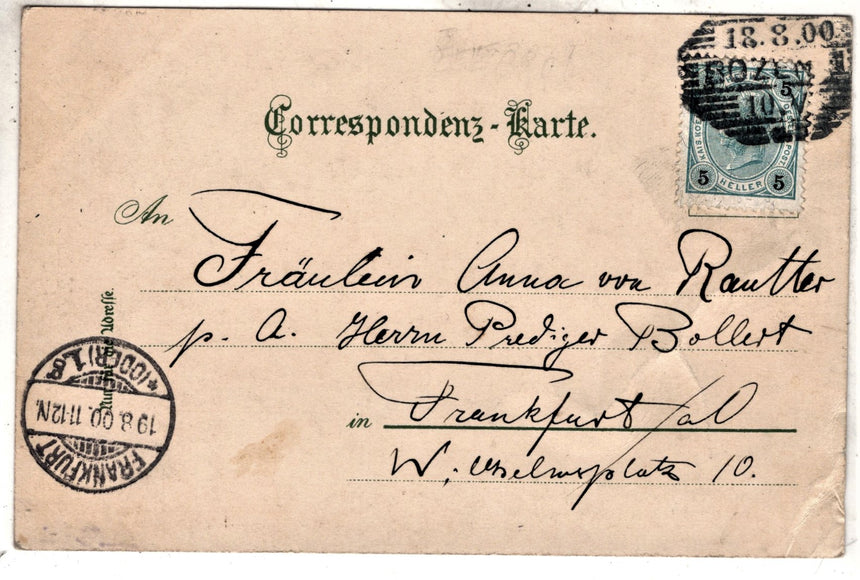 18.8.00
BOZEN 1
10.V
5
5 HELLER 5
Correspondenz-Karte.
An
Fräulein Anna von Rautter
p. A. Herrn Prediger Bollert
in Frankfurt a/O
Wilhelmsplatz 10.
Nur für die Adresse.
FRANKFURT
19.8.00.11-12N.
*(ODER)1.S